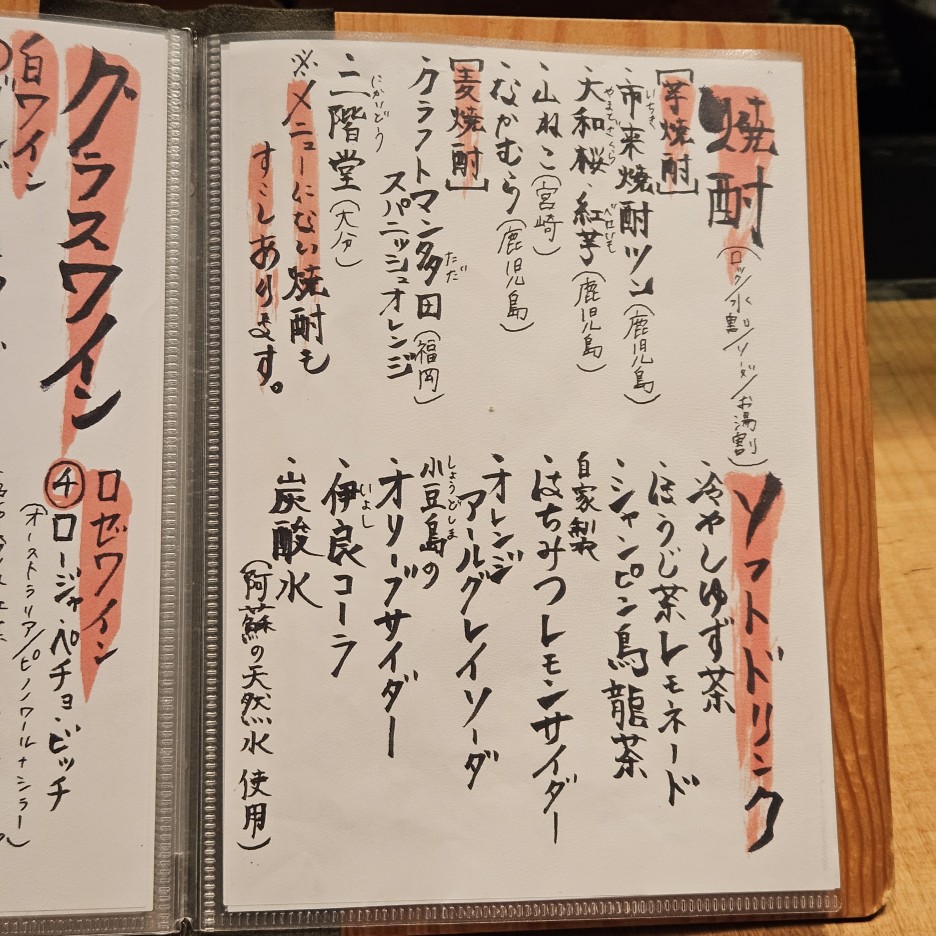 焼酎
(ロック/水割/ソーダ/お湯割)
【芋焼酎】
・市来焼酎ツン(鹿児島)
いちき
・大和桜・紅芋(鹿児島)
やまとざくら
べにいも
・山ねこ(宮崎)
・なかむら(鹿児島)
【麦焼酎】
・クラフトマン多田(福岡)
ただ
スパニッシュオレンジ
・二階堂(大分)
にかいどう
※メニューにない焼酎も
すこしあります。
ソフトドリンク
・冷やしゆず茶
・ほうじ茶レモネード
・シャンピン烏龍茶
自家製
・はちみつレモンサイダー
・オレンジ
アールグレイソーダ
・小豆島の
しょうどしま
オリーブサイダー
・伊良コーラ
いよし
・炭酸水
(阿蘇の天然水使用)
グラスワイン
ロゼワイン
チ ロージャ・ペチョ・ビッチ
(オーストラリア/ピノノワール+シラー)
白ワイン